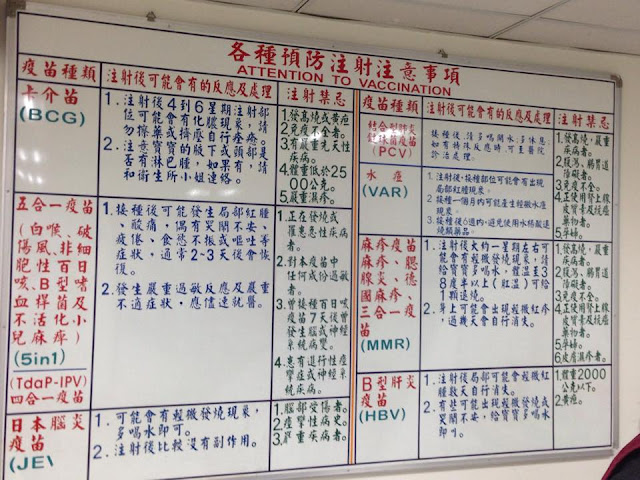 各種預防注射注意事項
ATTENTION TO VACCINATION
疫苗種類
注射後可能會有的反應及處理
注射禁忌
卡介苗
(BCG)
1. 注射後4到6星期注射部
位可能會有化膿現象，請
勿擦藥或擠壓自行痊癒。
2. 注意寶寶的腋下或頸部是
否有淋巴腫，如果有，請
和衛生所小姐連絡。
1. 發高燒或黃疸
2. 免疫不全者。
3. 有嚴重先天性
疾病。
4. 體重低於25
00公克。
5. 嚴重濕疹。
五合一疫苗
(白喉、破
傷風、非細
胞性百日
咳、B型嗜
血桿菌及
不活化小
兒麻痺)
(5in1)
(TdaP-IPV)
四合一疫苗
1. 接種後可能發生局部紅腫
、酸痛，偶有哭鬧不安、
疲倦、食慾不振或嘔吐等
症狀，通常2~3天後會恢
復。
2. 發生嚴重過敏反應及嚴重
不適症狀，應儘速就醫。
1. 正在發燒或
罹患急性疾
病者。
2. 對本疫苗中
任何成份過敏
者。
3. 曾接種百日咳
疫苗7天後曾
發生腦或神經
系統病變。
4. 患有進行性痙
孿症或神經系
統疾病。
日本腦炎
疫苗
(JE)
1. 可能會有輕微發燒現象，
多喝水即可。
2. 注射後比較沒有副作用。
1. 腦部受傷者。
2. 痙孿性病史。
3. 嚴重疾病者。
疫苗種類
注射後可能會有的反應及處理
注射禁忌
結合型肺炎
鏈球菌疫苗
(PCV)
接種後，請多喝開水，多休息，
如有特殊反應時，可至醫院
診治處理。
1. 發高燒，嚴重
疾病者。
2. 腹瀉、腸胃道
障礙者。
3. 免疫不全。
4. 正使用腎上腺
皮質素及抗癌
藥物者。
5. 孕婦。
水痘
(VAR)
1. 注射後，接種部位可能會有出現
局部紅腫現象。
2. 接種一個月內可能產生輕微水痘
現象。
3. 接種後6週內，避免使用水楊酸退
燒類藥品。
麻疹疫苗
麻疹、腮
腺炎、德
國麻疹、
三合一疫
苗
(MMR)
1. 注射後大約一星期左右可
能會有輕微發燒現象，請
給寶寶多喝水，體溫至3
8度半以上(肛溫)可給
1顆退燒。
2. 身上可能會出現輕微紅疹
，過幾天會自行消失。
1. 發高燒，嚴重
疾病者。
2. 腹瀉、腸胃道
障礙者。
3. 免疫不全。
4. 正使用腎上腺
皮質素及抗癌
藥物者。
5. 孕婦。
6. 皮膚濕疹者。
B型肝炎
疫苗
(HBV)
1. 注射後局部可能會有輕微紅
腫數天自行消失。
2. 有些可能出現輕微發燒或
哭鬧不安，給寶寶多喝水
即可。
1. 體重2000
公克以下。
2. 黃疸。